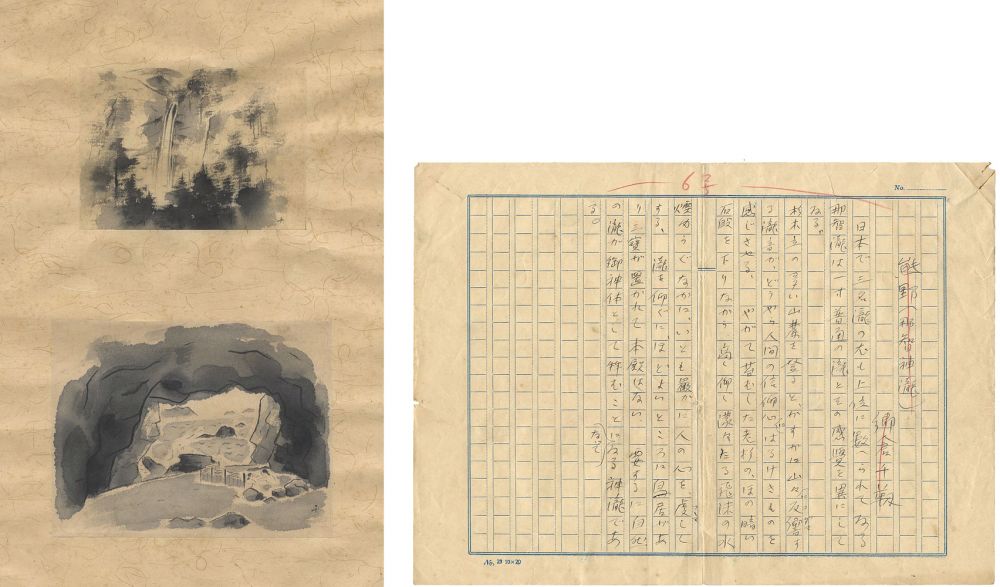 No.
熊野(那智神瀧)
郷倉千靱
日本で三名瀧の尤も上位に数へられてゐる
那智瀧は一寸普通の瀧とその感覚を異にして
ゐる。
杉木立の多い山麓を登ると、かすかに山々に反響す
る瀧音が、どうやら人間の信仰心はるけきものを
感じさせる、やがて苔むした老杉の、ほの暗い
石段を下りながら高く仰し濛々たる飛沫の水
煙めうぐなかに、いとも厳かに人の心を虔して
する、瀧を仰ぐにほどよいところに鳥居があ
り三寳が置かれて本殿はない、要するに自然
の瀧が御神体として佇むことになる神瀧であ
る。
(なって)
No. 20 10×20